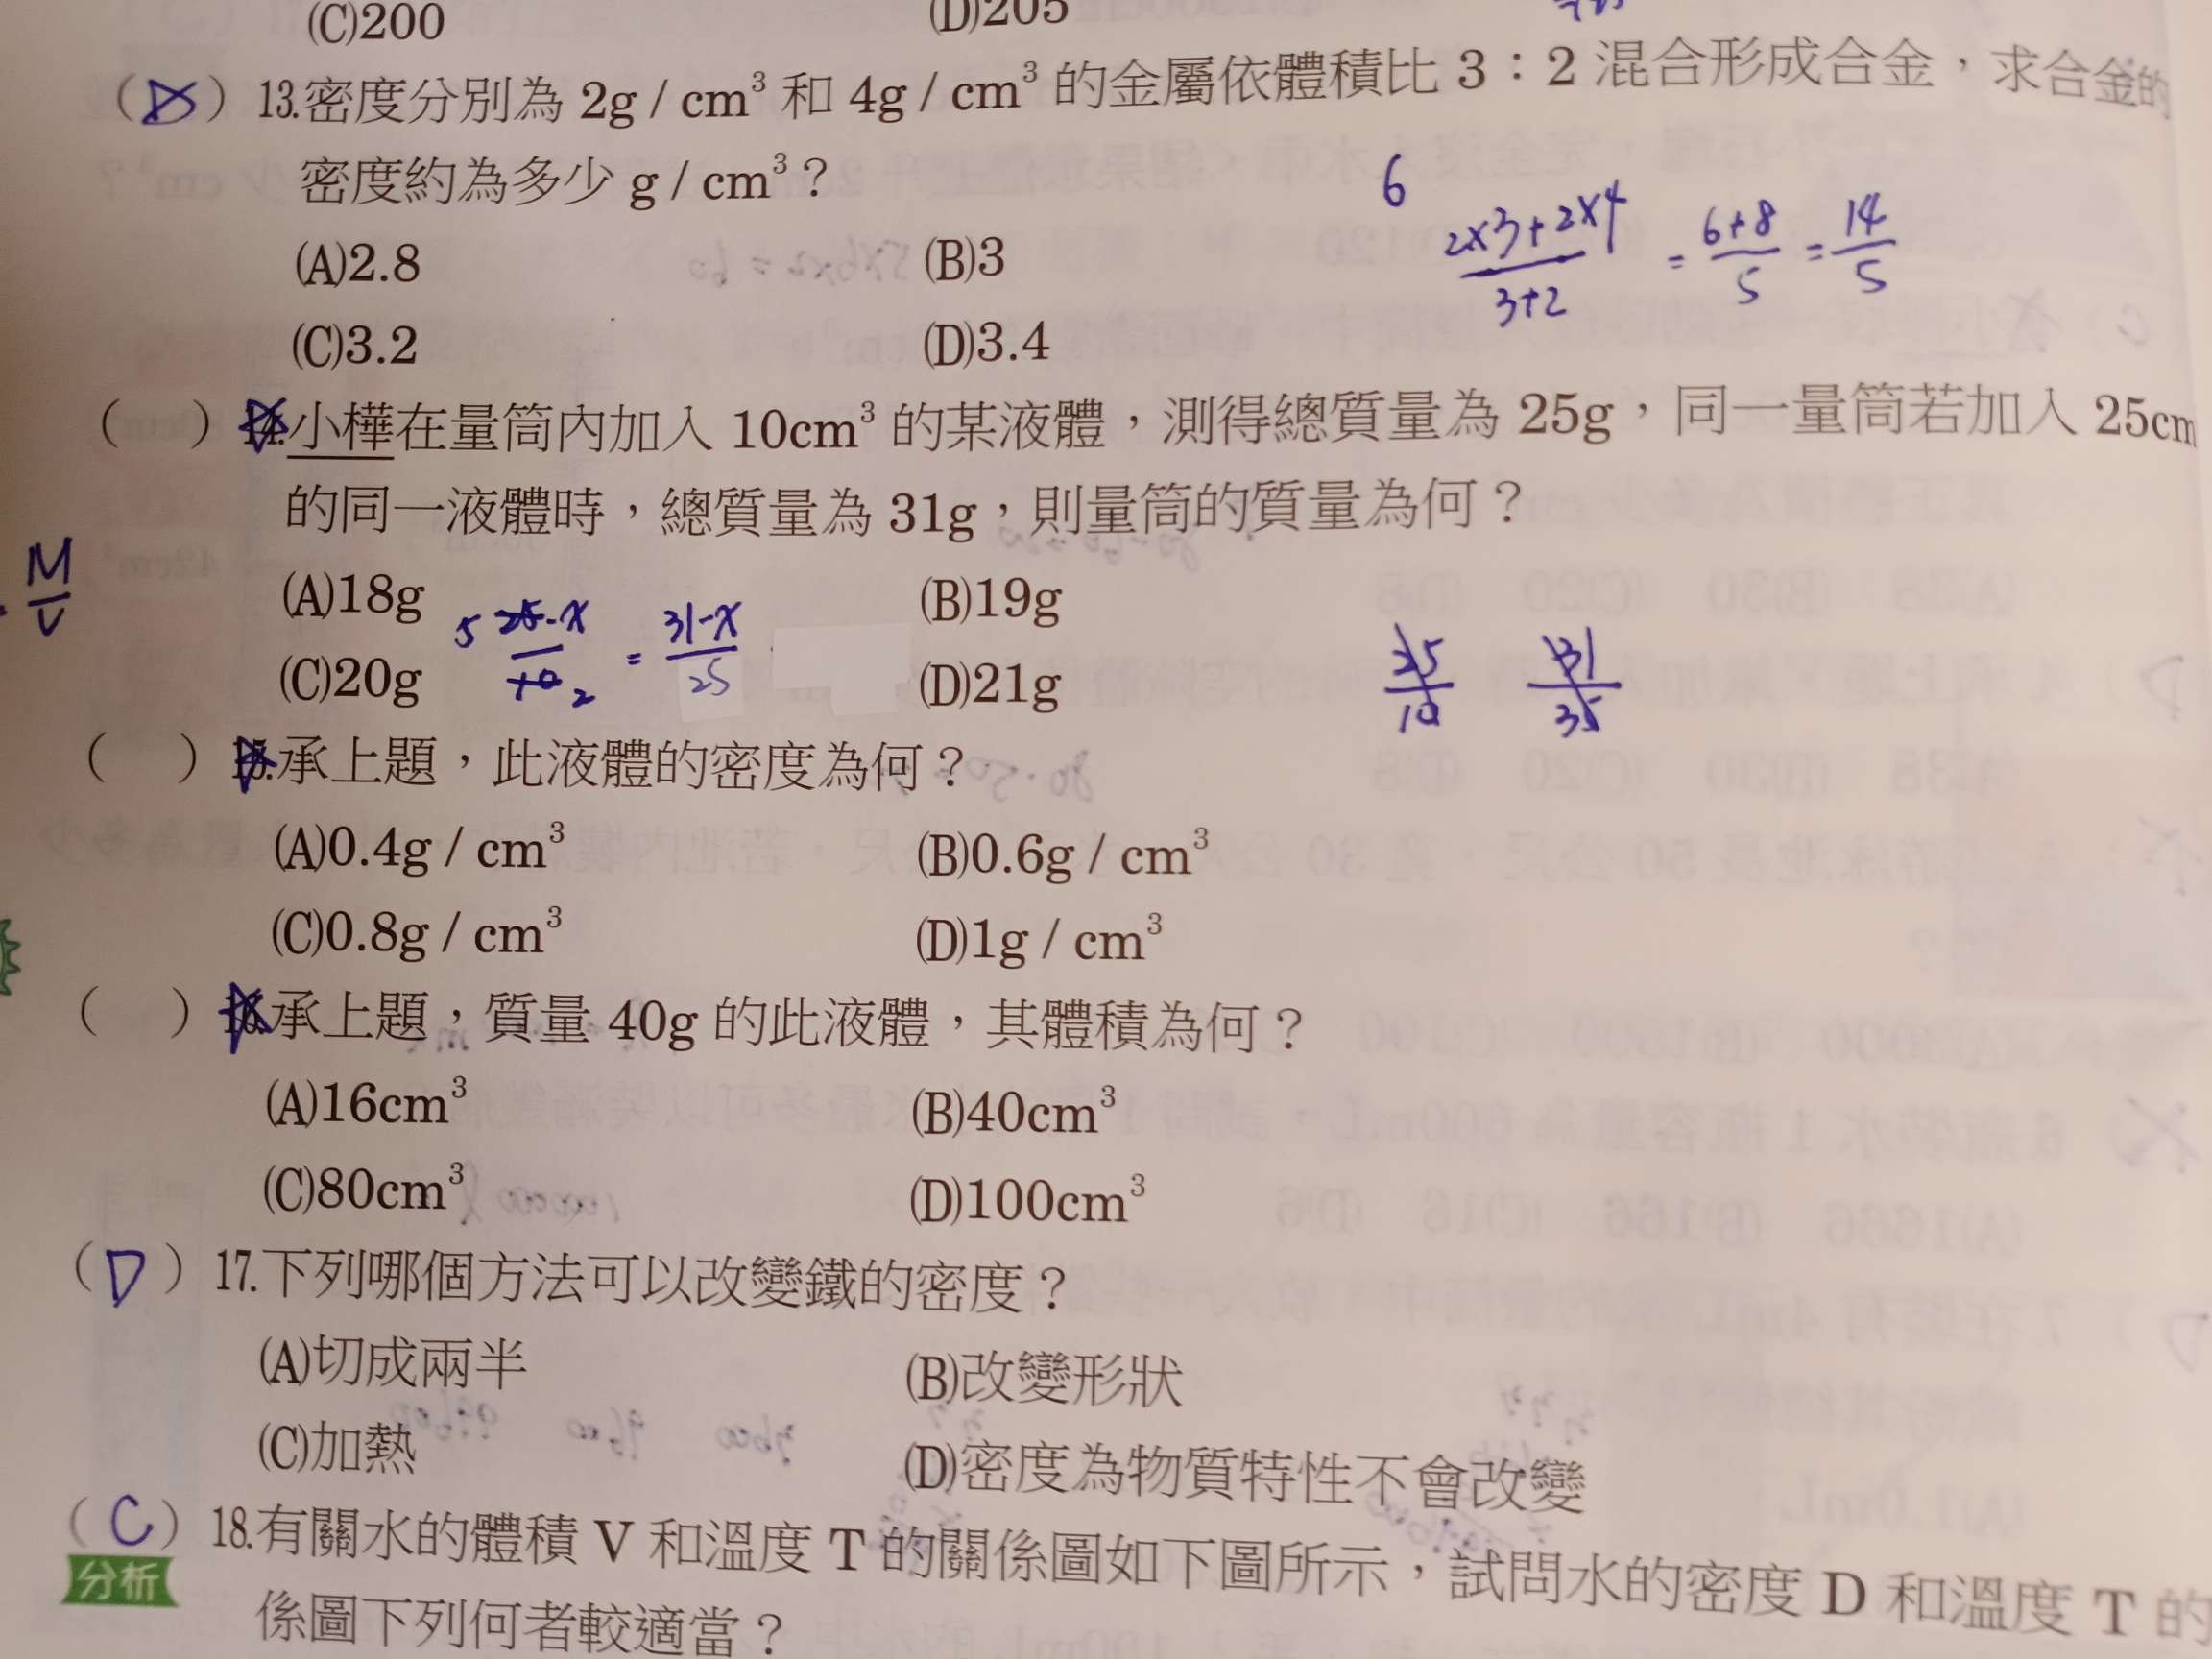 (C)200 (D)205
( ) 13.密度分別為 2g / cm³ 和 4g / cm³ 的金屬依體積比 3：2 混合形成合金，求合金的
密度約為多少 g / cm³？
6
2×3+2×4 / 3+2 = 6+8 / 5 = 14 / 5
(A)2.8 (B)3
(C)3.2 (D)3.4
( ) 小樺在量筒內加入 10cm³ 的某液體，測得總質量為 25g，同一量筒若加入 25cm
的同一液體時，總質量為 31g，則量筒的質量為何？
M / V
(A)18g (B)19g
5 25-x / 10 2 = 31-x / 25
25 / 10 31 / 35
(C)20g (D)21g
( ) 15.承上題，此液體的密度為何？
(A)0.4g / cm³ (B)0.6g / cm³
(C)0.8g / cm³ (D)1g / cm³
( ) 16.承上題，質量 40g 的此液體，其體積為何？
(A)16cm³ (B)40cm³
(C)80cm³ (D)100cm³
(D) 17.下列哪個方法可以改變鐵的密度？
(A)切成兩半 (B)改變形狀
(C)加熱 (D)密度為物質特性不會改變
(C) 18.有關水的體積 V 和溫度 T 的關係圖如下圖所示，試問水的密度 D 和溫度 T 的
分析
係圖下列何者較適當？